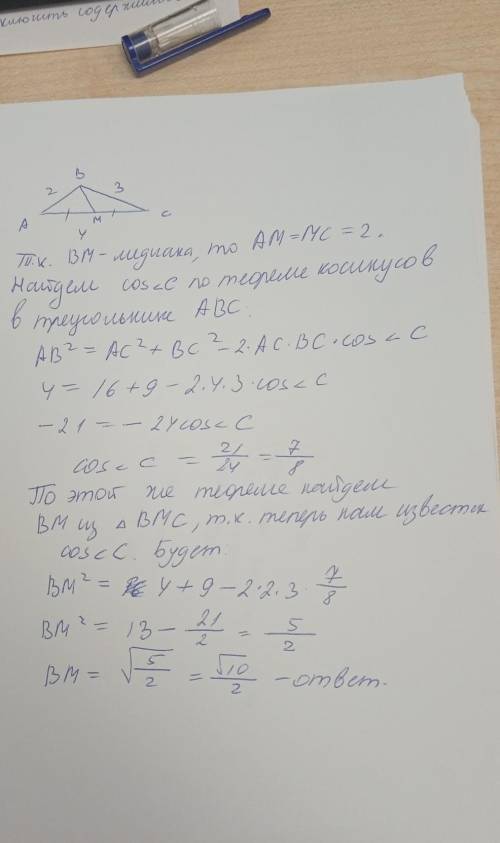 ключить содержим
B
2 3
A M C
4
Т.к. BM-медиана, то AM=MC=2.
Найдем cos∠C по теореме косинусов
в треугольнике ABC:
AB²=AC²+BC²-2·AC·BC·cos∠C
4=16+9-2·4·3·cos∠C
-21=-24cos∠C
cos∠C = 21/24 = 7/8
По этой же теореме найдем
BM из △BMC, т.к. теперь нам известен
cos∠C. Будет:
BM²= 4+9-2·2·3·7/8
BM²=13-21/2=5/2
BM=√5/2=√10/2-ответ.